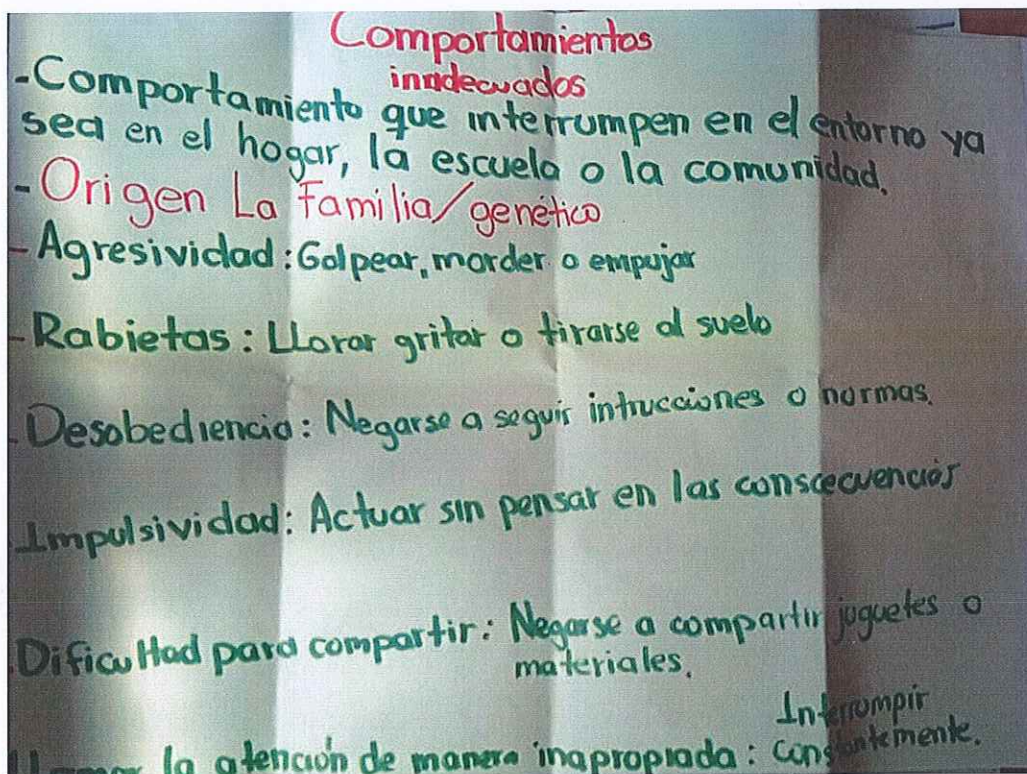 Comportamientos
inadecuados
-Comportamiento que interrumpen en el entorno ya
sea en el hogar, la escuela o la comunidad.
-Origen La Familia/genético
-Agresividad: Golpear, morder o empujar
-Rabietas: Llorar gritar o tirarse al suelo
-Desobediencia: Negarse a seguir intrucciones o normas.
Impulsividad: Actuar sin pensar en las conscecuencias
Dificultad para compartir: Negarse a compartir juguetes o
materiales.
Llamar la atención de manera inapropiada: Interrumpir
constantemente.